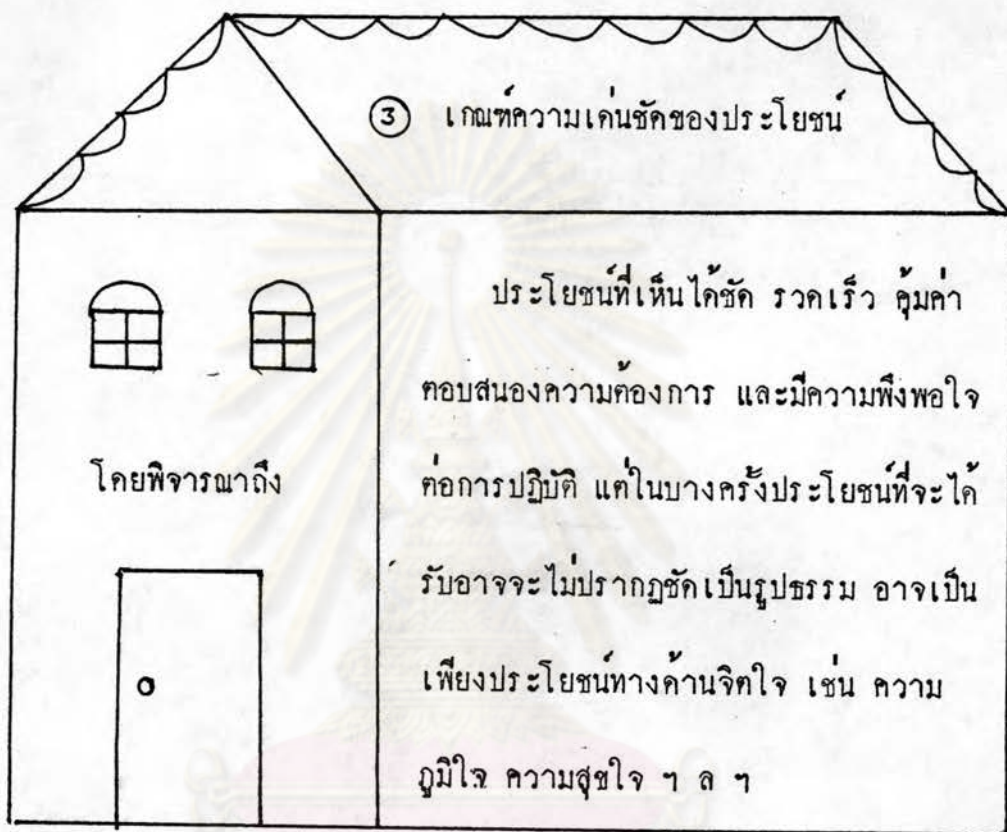 ③ เกณฑ์ความเด่นชัดของประโยชน์
โดยพิจารณาถึง
ประโยชน์ที่เห็นได้ชัด รวดเร็ว คุ้มค่า
ตอบสนองความต้องการ และมีความพึงพอใจ
ต่อการปฏิบัติ แต่ในบางครั้งประโยชน์ที่จะได้
รับอาจจะไม่ปรากฏชัดเป็นรูปธรรม อาจเป็น
เพียงประโยชน์ทางด้านจิตใจ เช่น ความ
ภูมิใจ ความสุขใจ ฯ ล ฯ